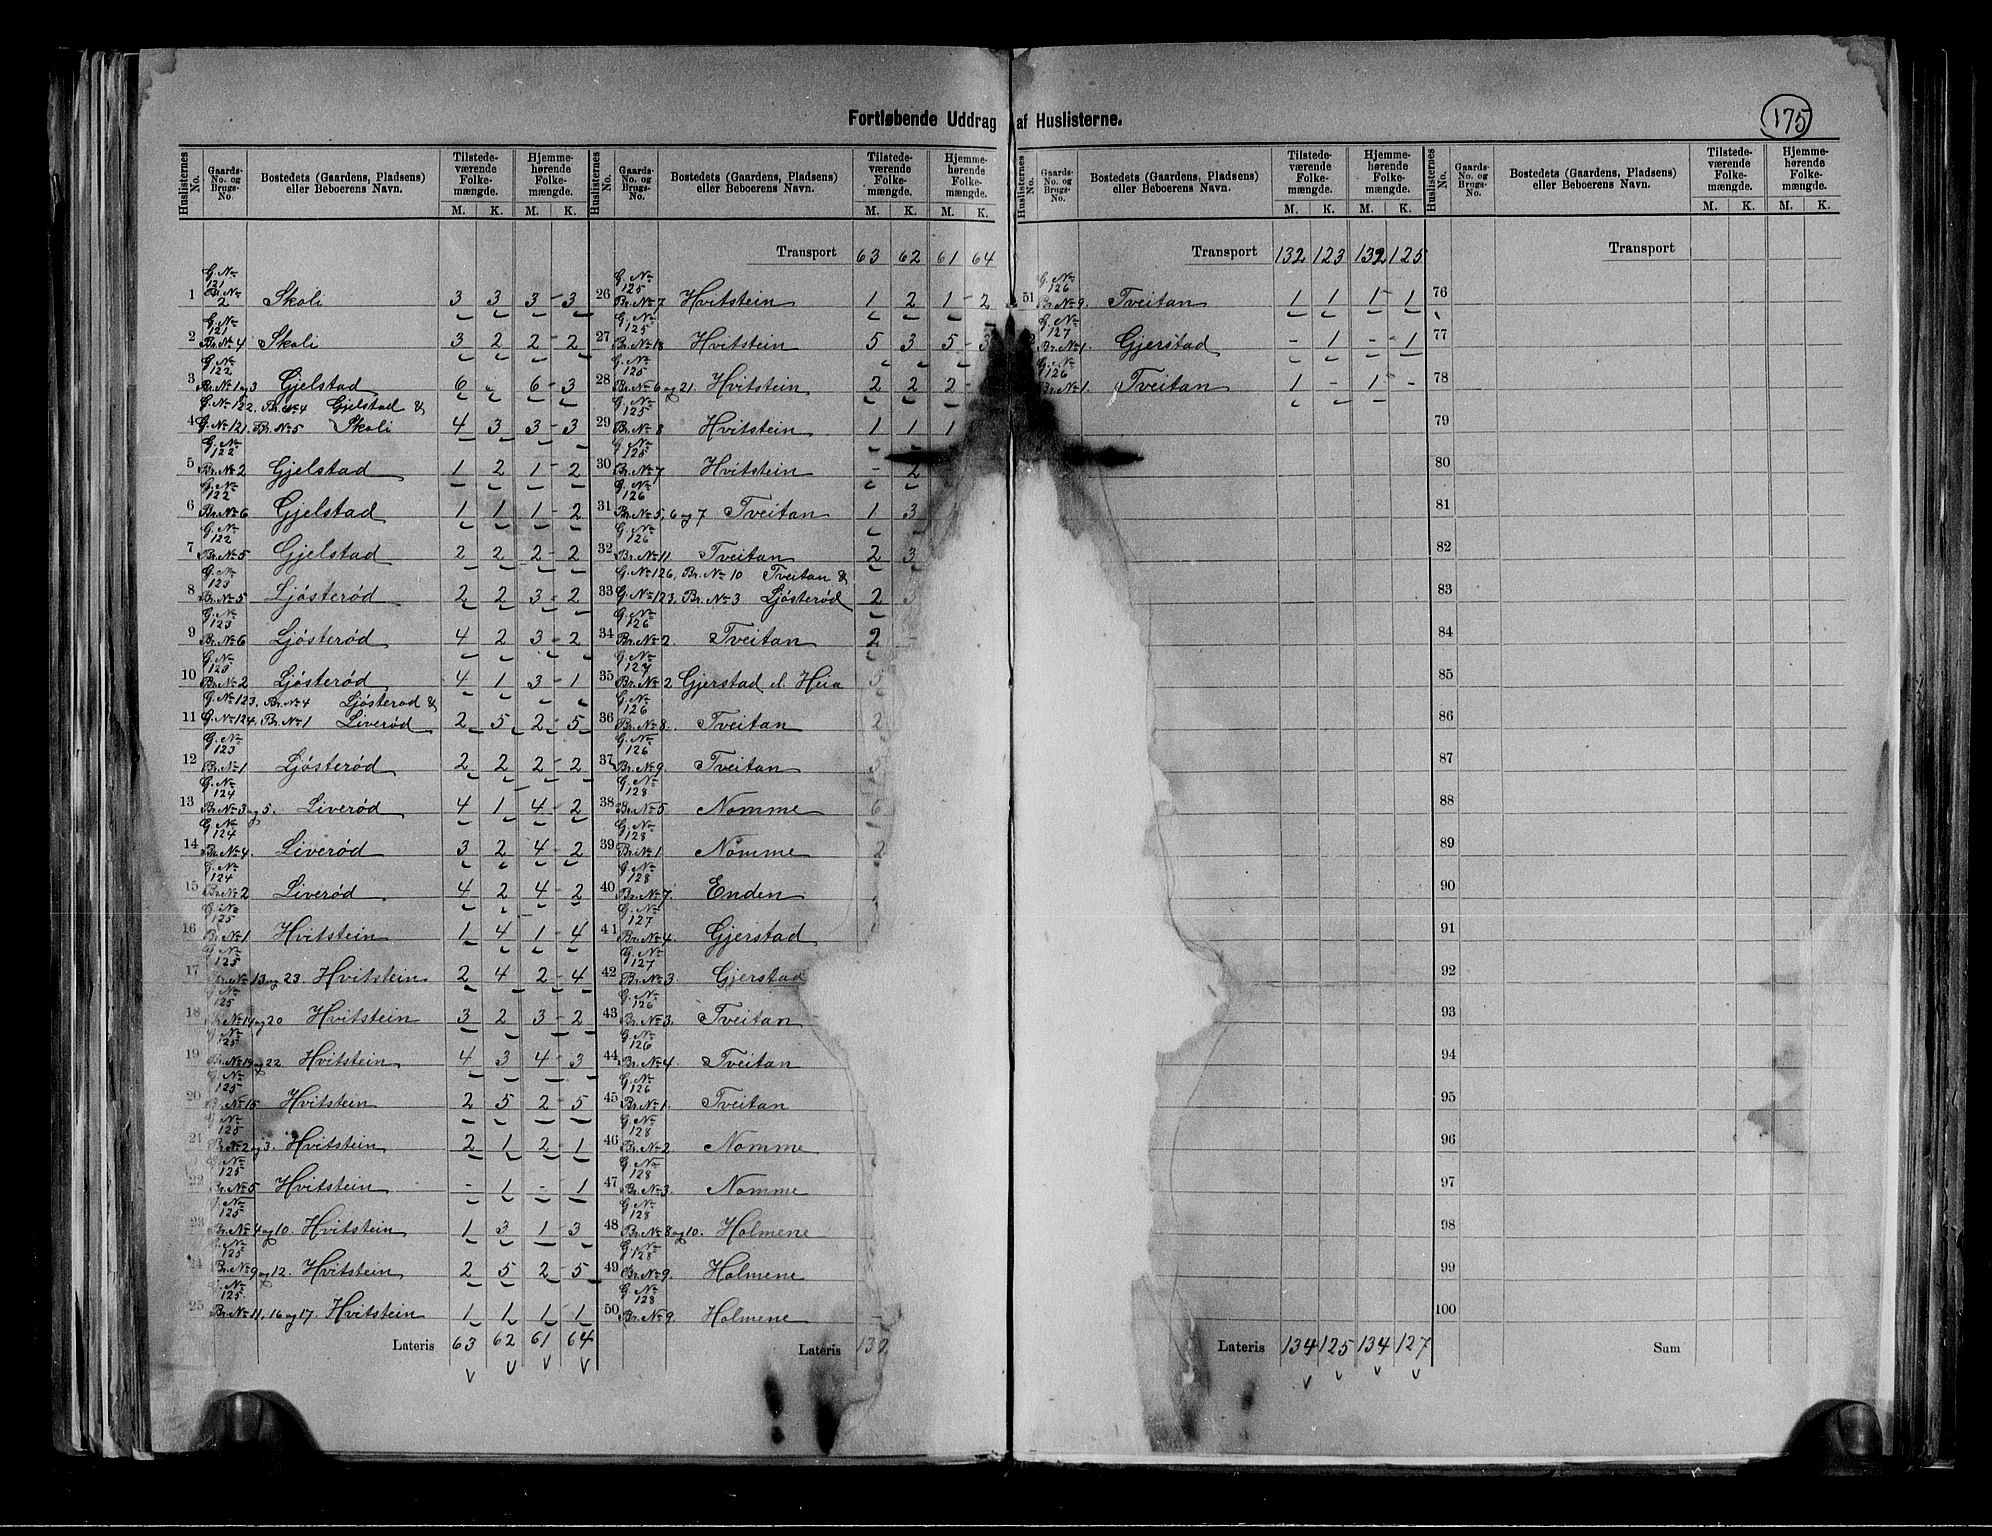 Fortløbende Uddrag af Huslisterne.
175
Huslisternes No. Gaards-No. og Brugs-No. Bostedets (Gaardens, Pladsens) eller Beboerens Navn. Tilstedeværende Folkemængde. M. K. Hjemmehørende Folkemængde. M. K.
G. No 121
1 Br. No 2 Skoli 3 3 3 - 3
G. No 121
2 Br. No 4 Skoli 3 2 2 - 2
G. No 122
3 Br. No 1 og 3 Gjelstad 6 6 - 3
G. No 122. Br. No 4 Gjelstad &
4 G. No 121. Br. No 5 Skoli 4 3 3 - 3
G. No 122
5 Br. No 2 Gjelstad 1 2 1 - 2
G. No 122
6 Br. No 6 Gjelstad 1 1 1 - 2
G. No 122
7 Br. No 5 Gjelstad 2 2 2 - 2
G. No 123
8 Br. No 5 Ljósterød 2 2 3 - 2
G. No 123
9 Br. No 6 Ljósterød 4 2 3 - 2
G. No 123
10 Br. No 2 Ljósterød 4 1 3 - 1
G. No 123. Br. No 4 Ljósterød &
11 G. No 124. Br. No 1 Liverød 2 5 2 - 5
G. No 123
12 Br. No 1 Ljósterød 2 2 2 - 2
G. No 124
13 Br. No 3 og 5. Liverød 4 1 4 - 2
G. No 124
14 Br. No 4. Liverød 3 2 4 - 2
G. No 124
15 Br. No 2 Liverød 4 2 4 - 2
G. No 125
16 Br. No 1 Hvitstein 1 4 1 - 4
G. No 125
17 Br. No 13 og 23. Hvitstein 2 4 2 - 4
G. No 125
18 Br. No 14 og 20 Hvitstein 3 2 3 - 2
G. No 125
19 Br. No 19 og 22 Hvitstein 4 3 4 - 3
G. No 125
20 Br. No 15 Hvitstein 2 5 2 - 5
G. No 125
21 Br. No 2 og 3. Hvitstein 2 1 2 - 1
G. No 125
22 Br. No 5 Hvitstein - 1 - 1
G. No 125
23 Br. No 4 og 10. Hvitstein 1 3 1 - 3
G. No 125
24 Br. No 9 og 12. Hvitstein 2 5 2 - 5
G. No 125.
25 Br. No 11, 16 og 17. Hvitstein 1 1 1 - 1
Lateris 63 62 61 64
Huslisternes No. Gaards-No. og Brugs-No. Bostedets (Gaardens, Pladsens) eller Beboerens Navn. Tilstedeværende Folkemængde. M. K. Hjemmehørende Folkemængde. M. K.
Transport 63 62 61 64
G. No 125
26 Br. No 7 Hvitstein 1 2 1 - 2
G. No 125
27 Br. No 18 Hvitstein 5 3 5 - 3
G. No 125
28 Br. No 6 og 21. Hvitstein 2 2 2 -
G. No 125
29 Br. No 8 Hvitstein 1 1 1
G. No 125
30 Br. No 7 Hvitstein - 2
G. No 126
31 Br. No 5, 6 og 7 Tveitan 1 3
G. No 126
32 Br. No 11 Tveitan 2 3
G. No 126, Br. No 10 Tveitan &
33 G. No 123. Br. No 3 Ljósterød 2 3
G. No 126
34 Br. No 2. Tveitan 2
G. No 127
35 Br. No 2 Gjerstad el. Heia
G. No 126
36 Br. No 8. Tveitan 2
G. No 126
37 Br. No 9. Tveitan
G. No 128
38 Br. No 5 Nomme 6
G. No 128
39 Br. No 1 Nomme 2
G. No 128
40 Br. No 7. Enden
G. No 127
41 Br. No 4. Gjerstad
G. No 127
42 Br. No 3. Gjerstad
G. No 126
43 Br. No 3. Tveitan
G. No 126
44 Br. No 4. Tveitan
G. No 126
45 Br. No 1. Tveitan
G. No 128
46 Br. No 2 Nomme
G. No 128
47 Br. No 3. Nomme
G. No 128
48 Br. No 8 og 10. Holmene
G. No 128
49 Br. No 9. Holmene
G. No 128
50 Br. No 9. Holmene
Lateris 132
Huslisternes No. Gaards-No. og Brugs-No. Bostedets (Gaardens, Pladsens) eller Beboerens Navn. Tilstedeværende Folkemængde. M. K. Hjemmehørende Folkemængde. M. K.
Transport 132 123 132 125
G. No 126
51 Br. No 9. Tveitan 1 1 1 - 1
G. No 127
Br. No 1. Gjerstad - 1 - 1
G. No 126
Br. No 1. Tveitan 1 - 1 -
Lateris 134 125 134 127
Huslisternes No. Gaards-No. og Brugs-No. Bostedets (Gaardens, Pladsens) eller Beboerens Navn. Tilstedeværende Folkemængde. M. K. Hjemmehørende Folkemængde. M. K.
Transport
76
77
78
79
80
81
82
83
84
85
86
87
88
89
90
91
92
93
94
95
96
97
98
99
100
Sum